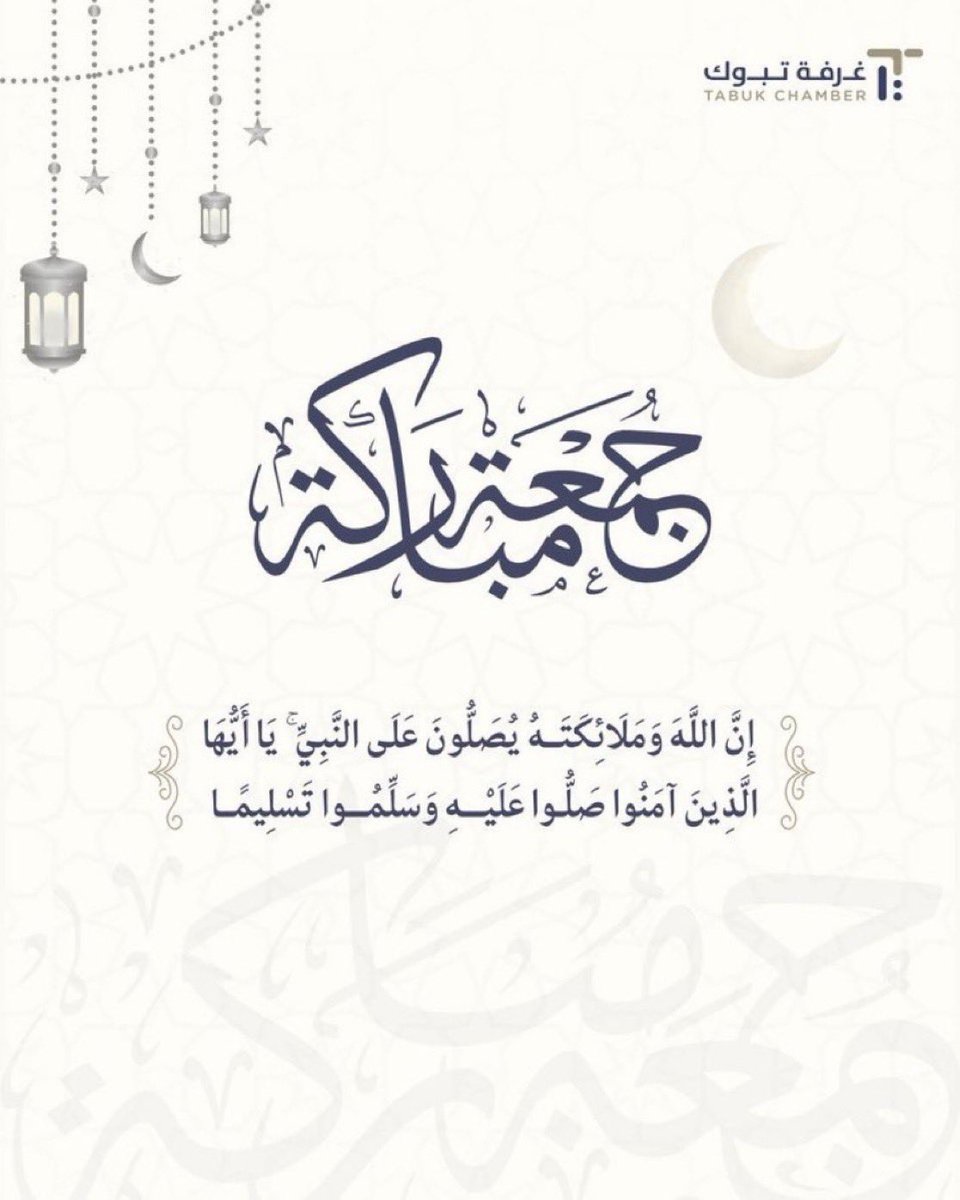 غرفة تبوك
TABUK CHAMBER
جُمُعَة مباركة
إِنَّ اللَّهَ وَمَلَائِكَتَـهُ يُصَلُّونَ عَلَى النَّبِيِّ ۚ يَا أَيُّهَا
الَّذِينَ آمَنُوا صَلُّوا عَلَيْـهِ وَسَلِّمُـوا تَسْلِيمًـا